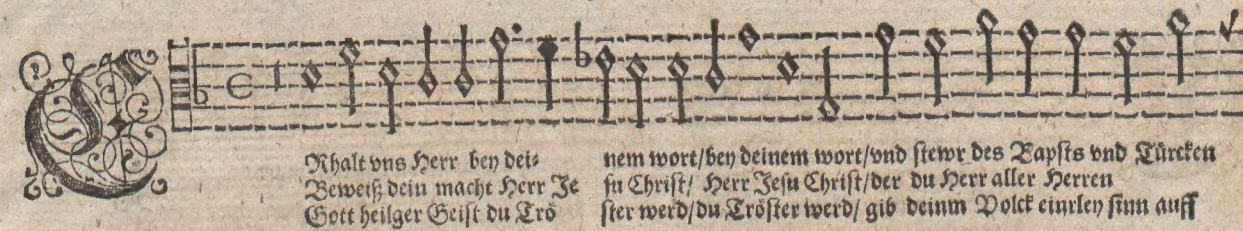 ERhalt vns Herr bey dei⸗ nem wort/bey deinem wort/vnd stewr des Bapsts vnd Türcken
Beweiß dein macht Herr Je su Christ/ Herr Jesu Christ/der du Herr aller Herren
Gott heilger Geist du Trö ster werd/du Tröster werd/ gib deinm Volck einrley sinn auff